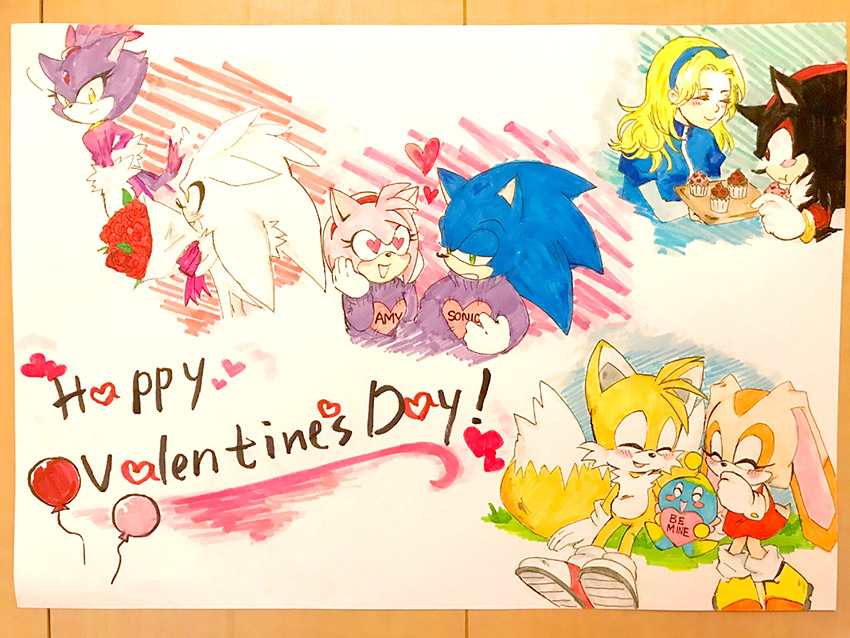 AMY
SONIC
Happy
Valentine's Day!
BE
MINE